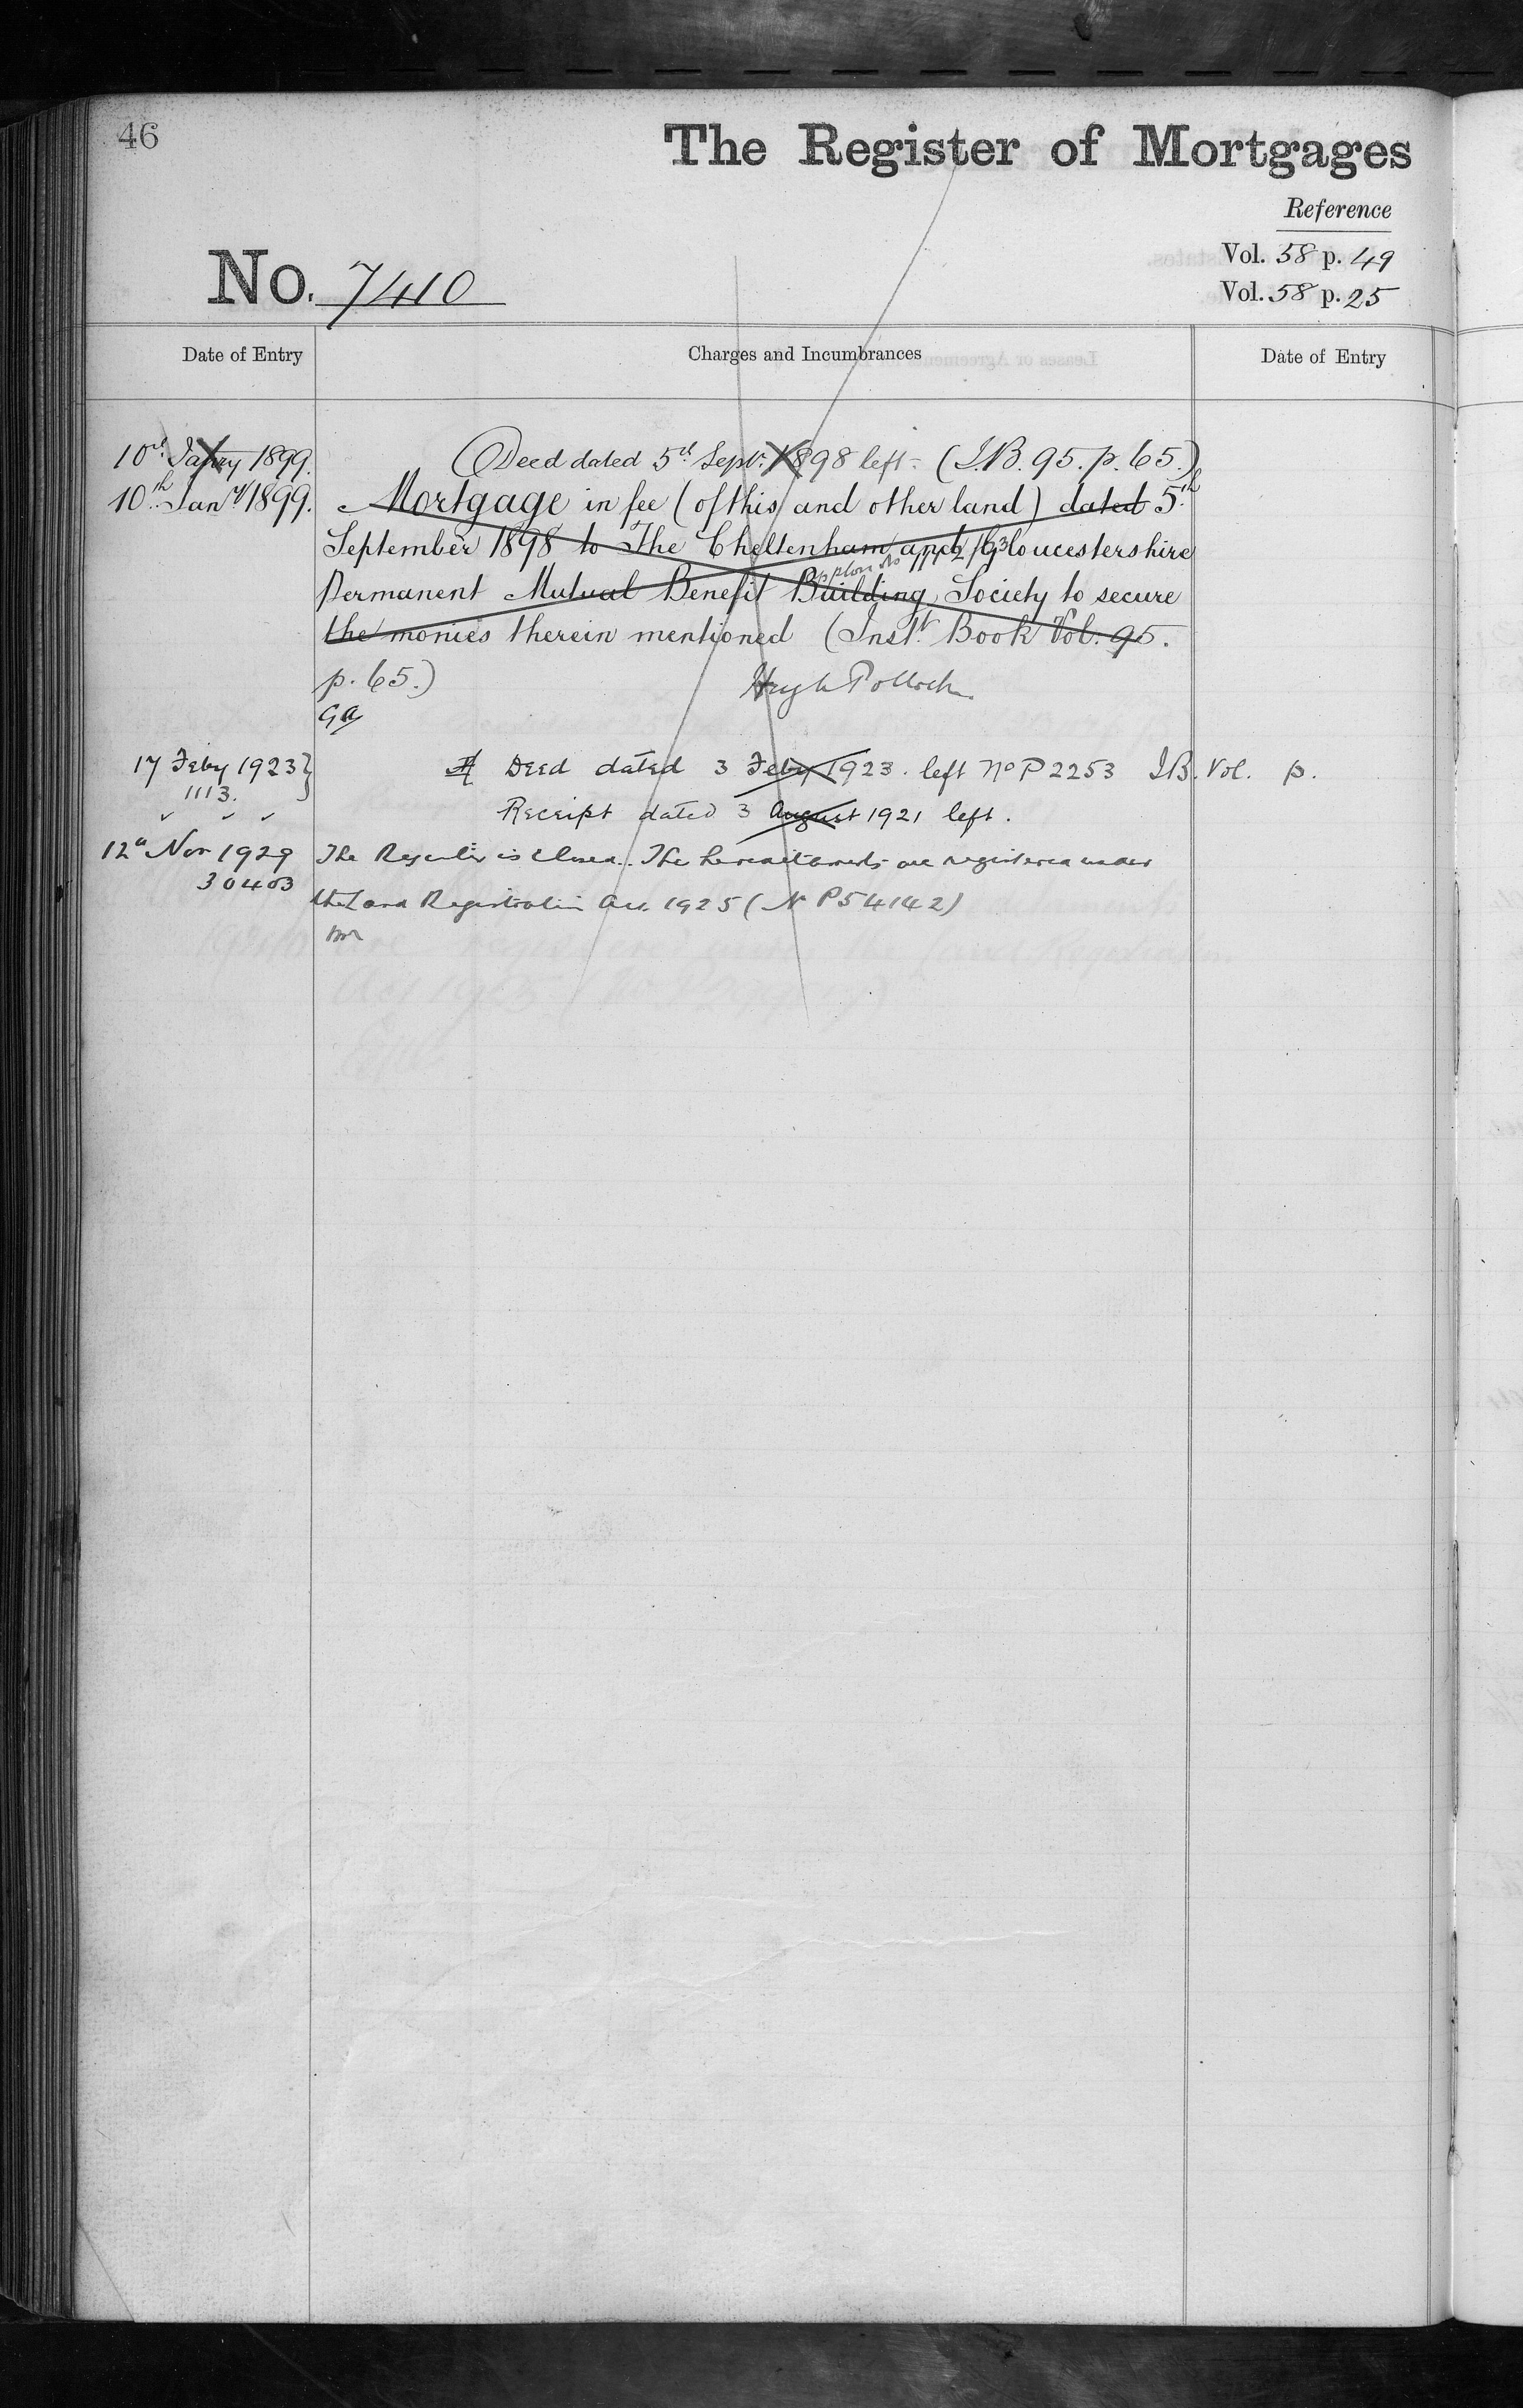 46
The Register of Mortgages
Reference
Vol. 58 p. 49
Vol. 58 p. 25
No. 7410
Date of Entry
Charges and Incumbrances
Date of Entry
10th Janry 1899.
Deed dated 5th Septr. 1898 left. (I.B. 95. p. 65.)
10th Jany 1899.
Mortgage in fee (of this and other land) dated 5th
September 1898 to The Cheltenham and Gloucestershire
Permanent Mutual Benefit Building Society to secure
the monies therein mentioned (Instt. Book Vol. 95.
p. 65.)
Hugh Pollock
Ga
17 Feby 1923
1113.
Deed dated 3 Feby 1923. left No P2253 I.B. Vol. p.
Receipt dated 3 August 1921 left.
12th Nov 1929
30403
The Register is closed. The hereditaments are registered under
the Land Registration Act. 1925 (No P54142)